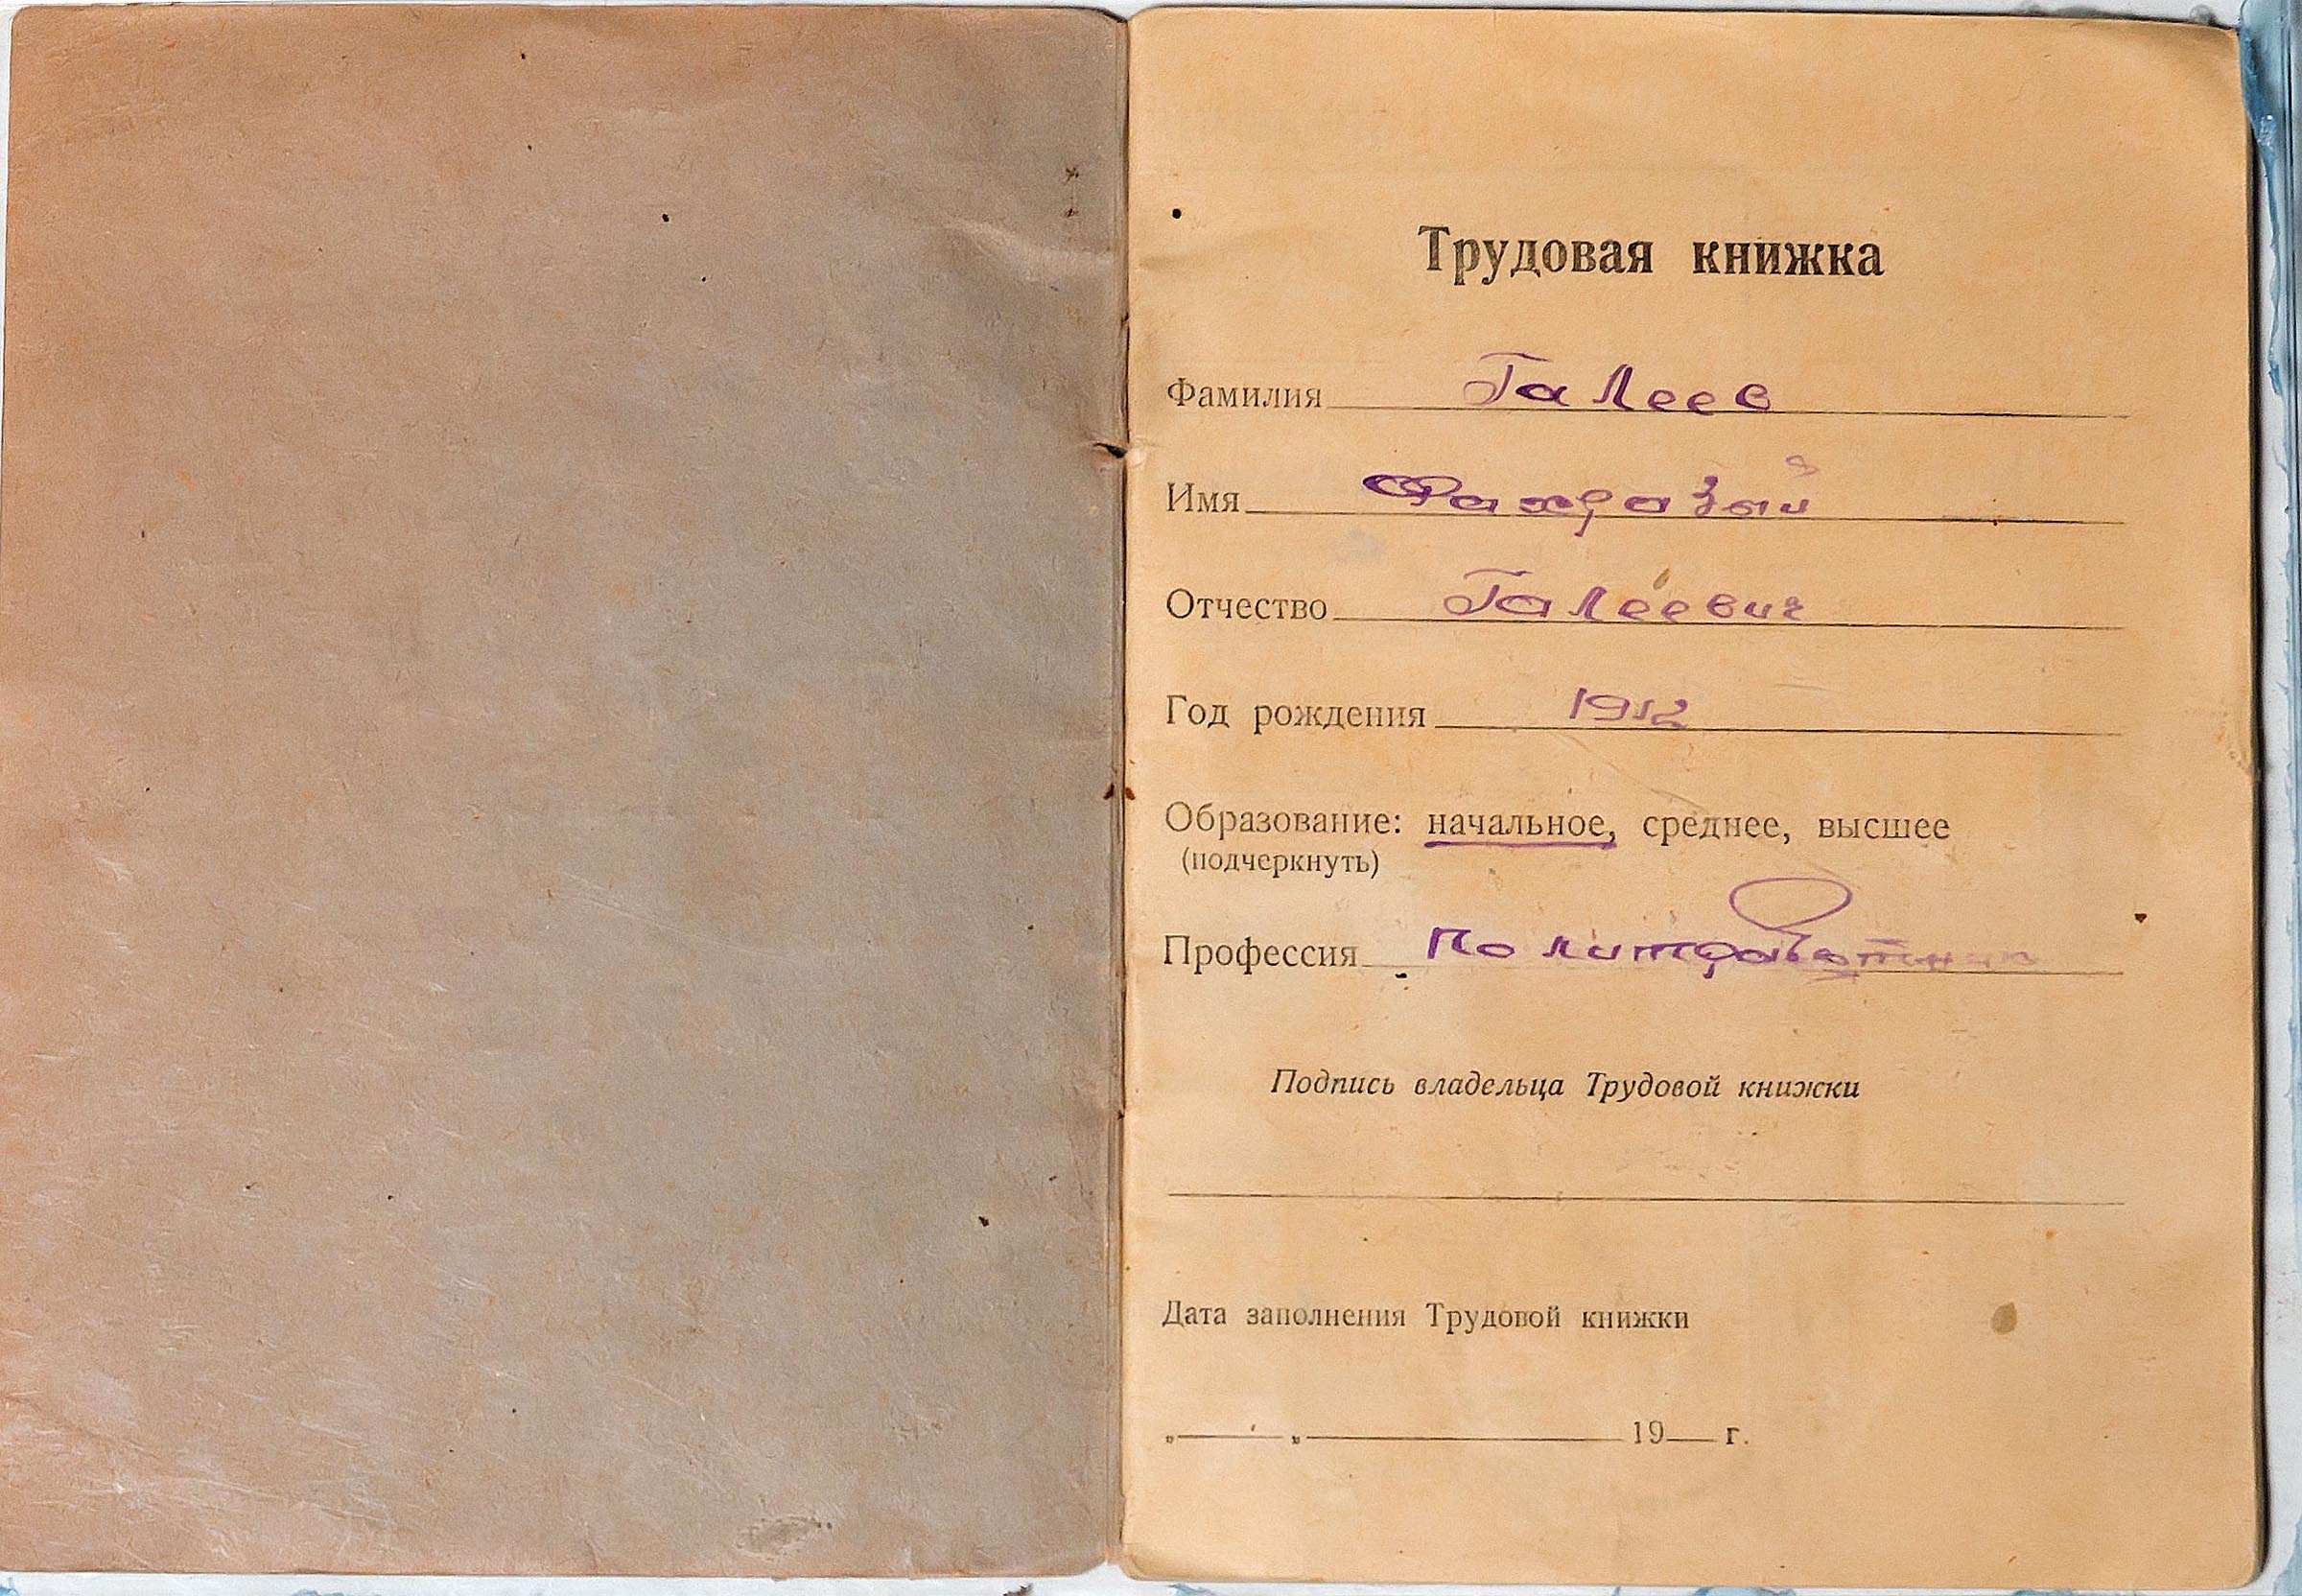 Трудовая книжка
Фамилия Галеев
Имя Фахразый
Отчество Галеевич
Год рождения 1912
Образование: начальное, среднее, высшее
(подчеркнуть)
Профессия Политработник
Подпись владельца Трудовой книжки
Дата заполнения Трудовой книжки
„ „ 19 г.